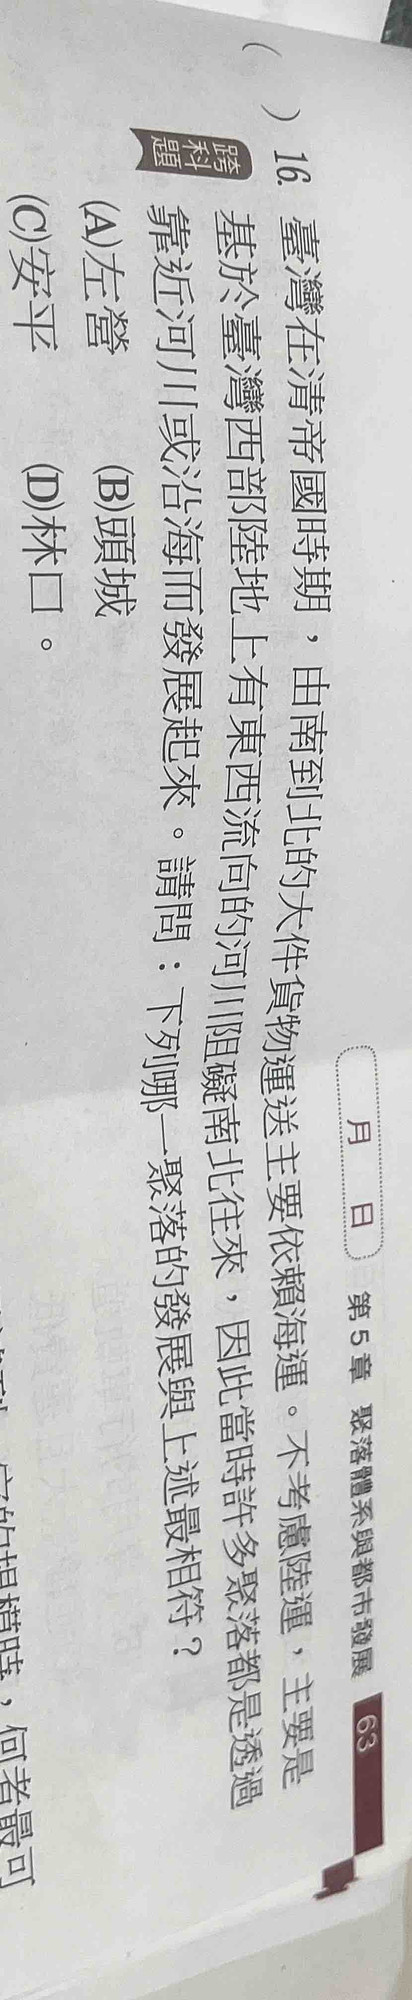 月 日 第5章 聚落體系與都市發展 63
( )16. 臺灣在清帝國時期，由南到北的大件貨物運送主要依賴海運。不考慮陸運，主要是
跨科題 基於臺灣西部陸地上有東西流向的河川阻礙南北往來，因此當時許多聚落都是透過
靠近河川或沿海而發展起來。請問：下列哪一聚落的發展與上述最相符？
(A)左營 (B)頭城
(C)安平 (D)林口。
時，何者最可